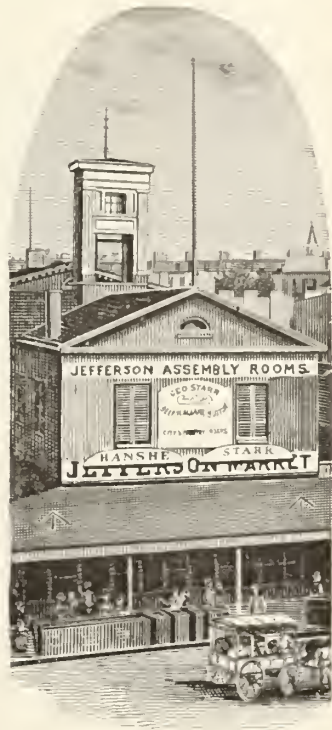 JEFFERSON ASSEMBLY ROOMS
GEO STARR
HANSHE STARR
JEFFERSON MARKET